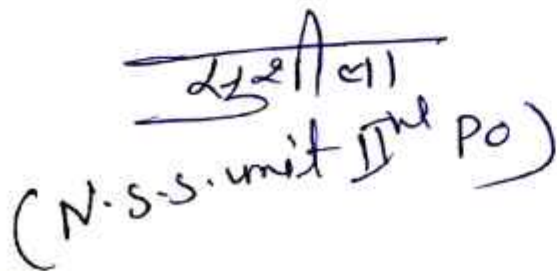 सुशीला
(N.S.S. unit IInd PO)